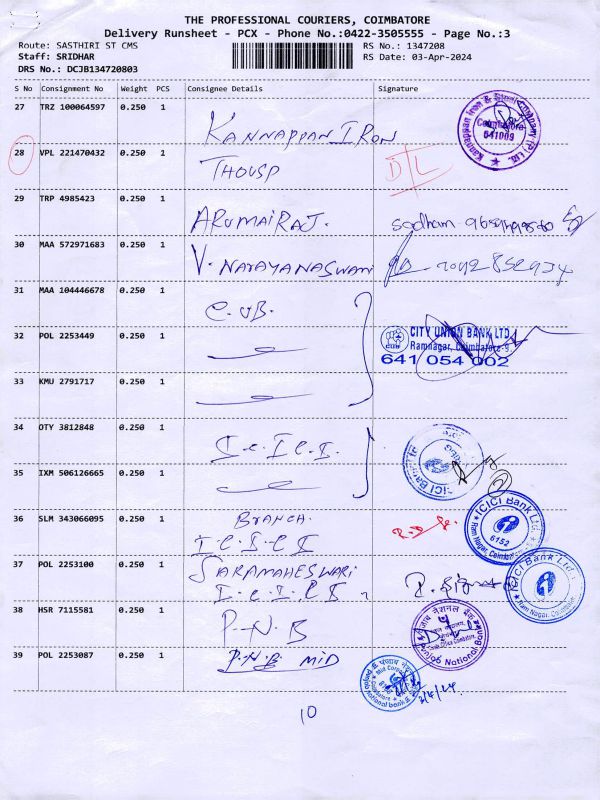 THE PROFESSIONAL COURIERS, COIMBATORE
Delivery Runsheet - PCX - Phone No.:0422-3505555 - Page No.:3
Route: SASTHIRI ST CMS RS No.: 1347208
Staff: SRIDHAR RS Date: 03-Apr-2024
DRS No.: DCJB134720803
S No Consignment No Weight PCS Consignee Details Signature
27 TRZ 100064597 0.250 1 KANNAPPAN IRON
Kannappan Iron & Steel Company (P) Ltd. Coimbatore 641009
28 VPL 221470432 0.250 1 THOUSP D/L
29 TRP 4985423 0.250 1 ARUMAIRAJ.
30 MAA 572971683 0.250 1 V. NARAYANASWAMI
31 MAA 104446678 0.250 1 C.UB.
32 POL 2253449 0.250 1
CITY UNION BANK LTD.
CUB Ramnagar, Coimbatore-9.
641 054 002
33 KMU 2791717 0.250 1
34 OTY 3812848 0.250 1 I.C.I.C.I.
ICICI Bank Ltd
35 IXM 506126665 0.250 1
36 SLM 343066095 0.250 1 BRANCH.
I.C.I.C.I
ICICI Bank Ltd. Ram Nagar, Coimbatore 6152
37 POL 2253100 0.250 1 SARAMAHESWARI
I.C.I.C.I
ICICI Bank Ltd. Ram Nagar, Coimbatore
38 HSR 7115581 0.250 1 P.N.B
पंजाब नैशनल बैंक Punjab National Bank
39 POL 2253087 0.250 1 P.N.B MID
Punjab National Bank
3/4/24
10